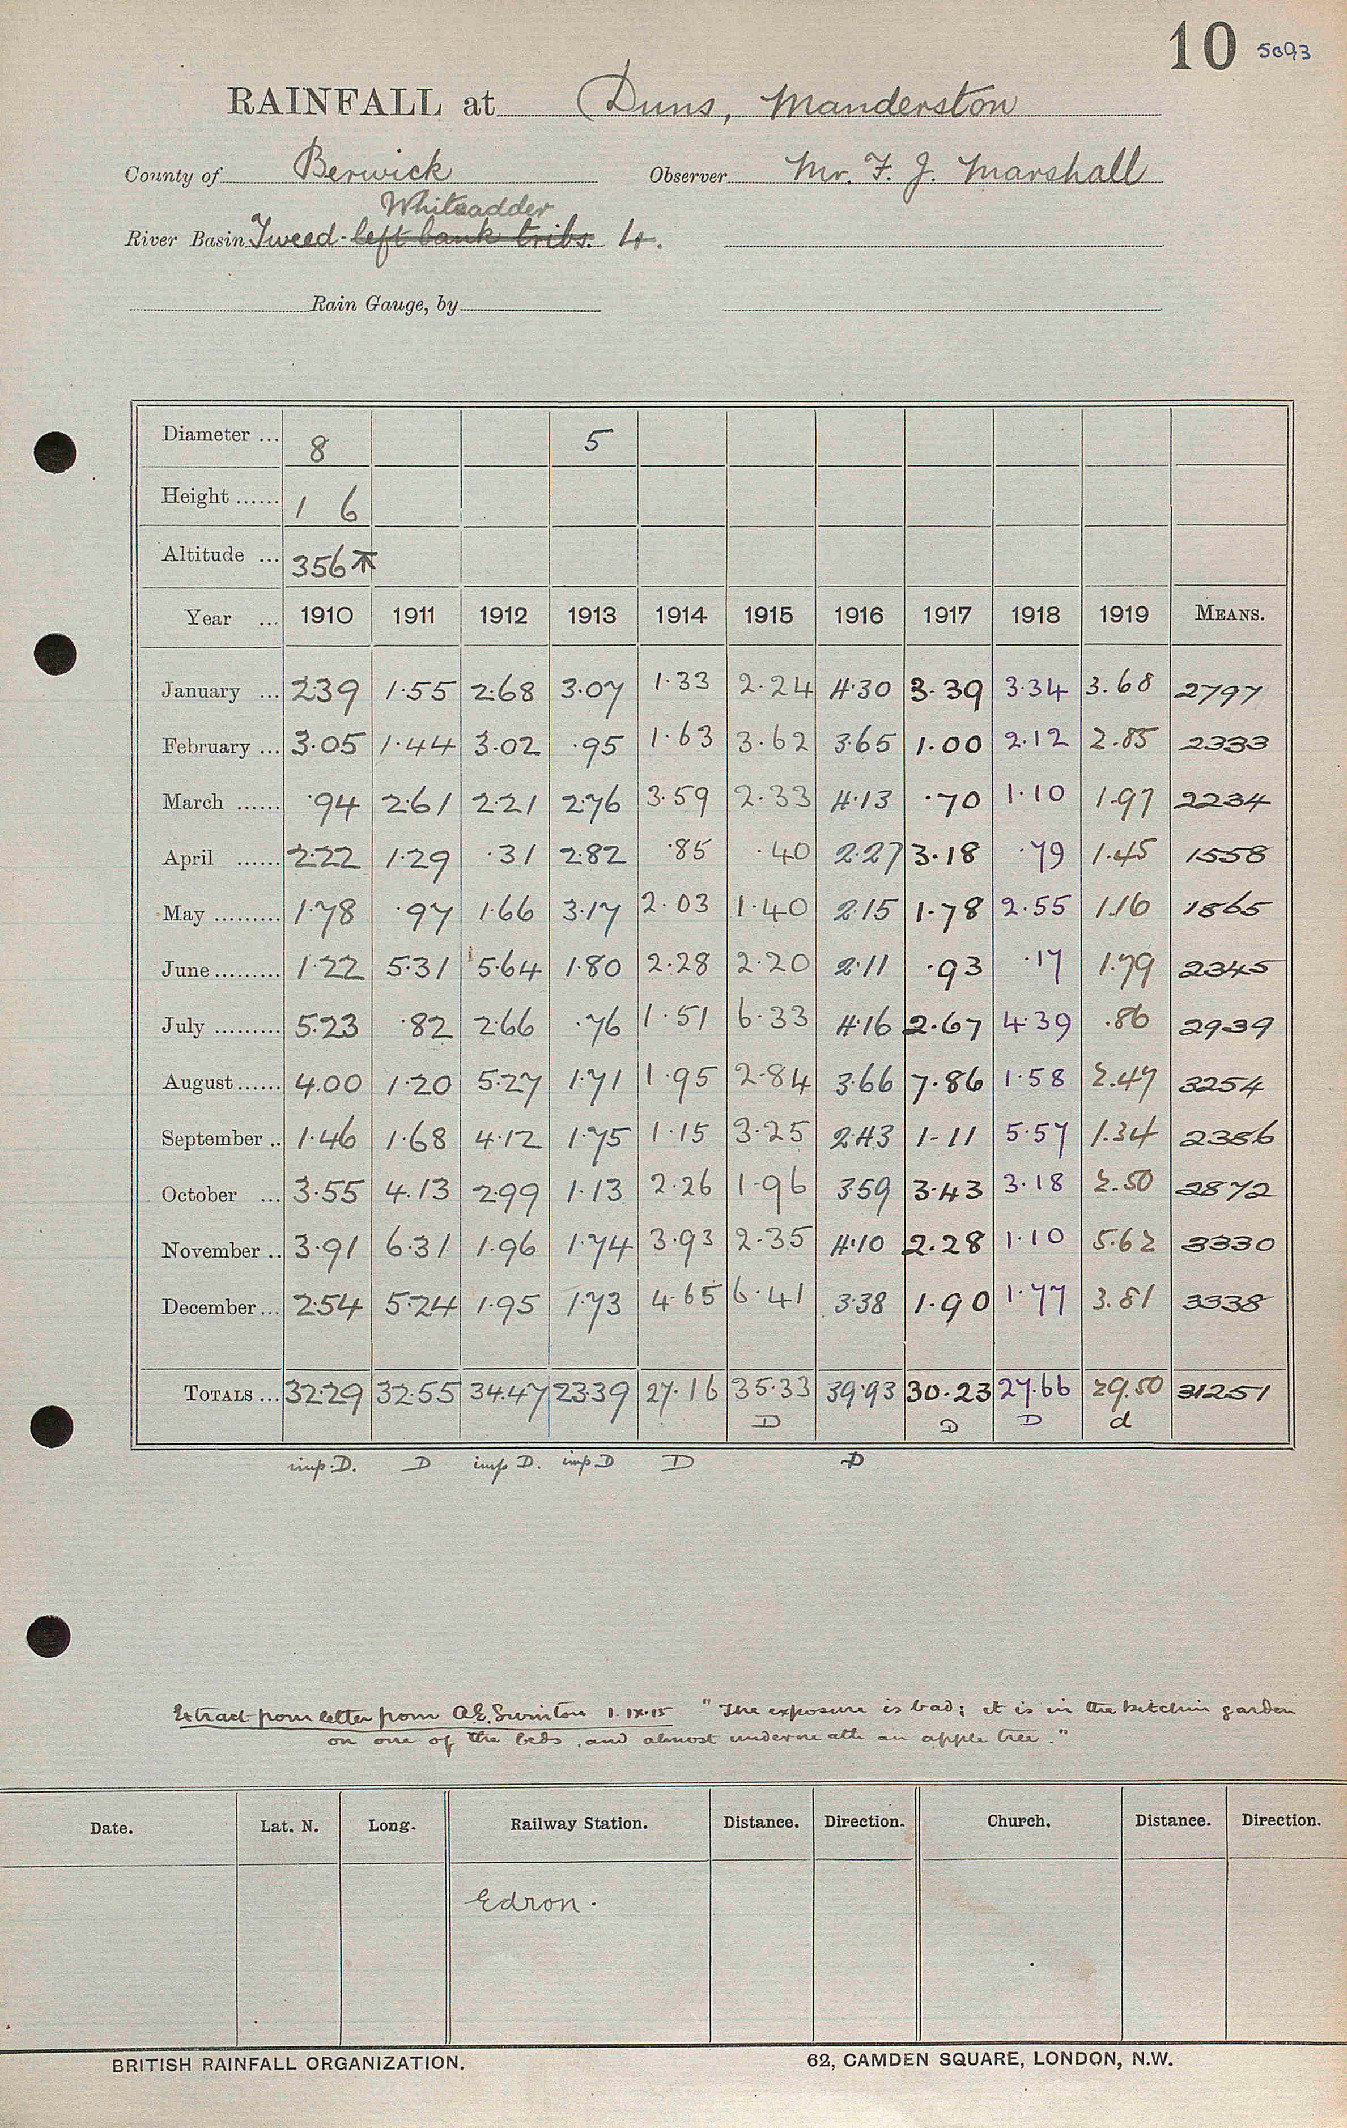 10 5093
RAINFALL at Duns, Manderston
County of Berwick Observer Mr. F. J. Marshall
Whiteadder
River Basin Tweed - left bank tribs. 4.
Rain Gauge, by
Diameter ... 8 5
Height ...... 1 6
Altitude ... 356
Year ... 1910 1911 1912 1913 1914 1915 1916 1917 1918 1919 MEANS.
January ... 2.39 1.55 2.68 3.07 1.33 2.24 4.30 3.39 3.34 3.68 2797
February ... 3.05 1.44 3.02 .95 1.63 3.62 3.65 1.00 2.12 2.85 2333
March ...... .94 2.61 2.21 2.76 3.59 2.33 4.13 .70 1.10 1.97 2234
April ...... 2.22 1.29 .31 2.82 .85 .40 2.27 3.18 .79 1.45 1558
May ......... 1.78 .97 1.66 3.17 2.03 1.40 2.15 1.78 2.55 1.16 1865
June ......... 1.22 5.31 5.64 1.80 2.28 2.20 2.11 .93 .17 1.79 2345
July ......... 5.23 .82 2.66 .76 1.51 6.33 4.16 2.67 4.39 .86 2939
August ...... 4.00 1.20 5.27 1.71 1.95 2.84 3.66 7.86 1.58 2.47 3254
September .. 1.46 1.68 4.12 1.75 1.15 3.25 2.43 1.11 5.57 1.34 2386
October ... 3.55 4.13 2.99 1.13 2.26 1.96 3.59 3.43 3.18 2.50 2872
November .. 3.91 6.31 1.96 1.74 3.93 2.35 4.10 2.28 1.10 5.62 3330
December ... 2.54 5.24 1.95 1.73 4.65 6.41 3.38 1.90 1.77 3.81 3338
TOTALS ... 32.29 32.55 34.47 23.39 27.16 35.33 39.93 30.23 27.66 29.50 31251
D D D d
imp. D. D imp D. imp D D D
Extract from letter from A.E. Swinton 1.IX.15 "The exposure is bad; it is in the kitchin garden
on one of the beds, and almost underneath an apple tree."
Date. Lat. N. Long. Railway Station. Distance. Direction. Church. Distance. Direction.
Edron.
BRITISH RAINFALL ORGANIZATION. 62, CAMDEN SQUARE, LONDON, N.W.